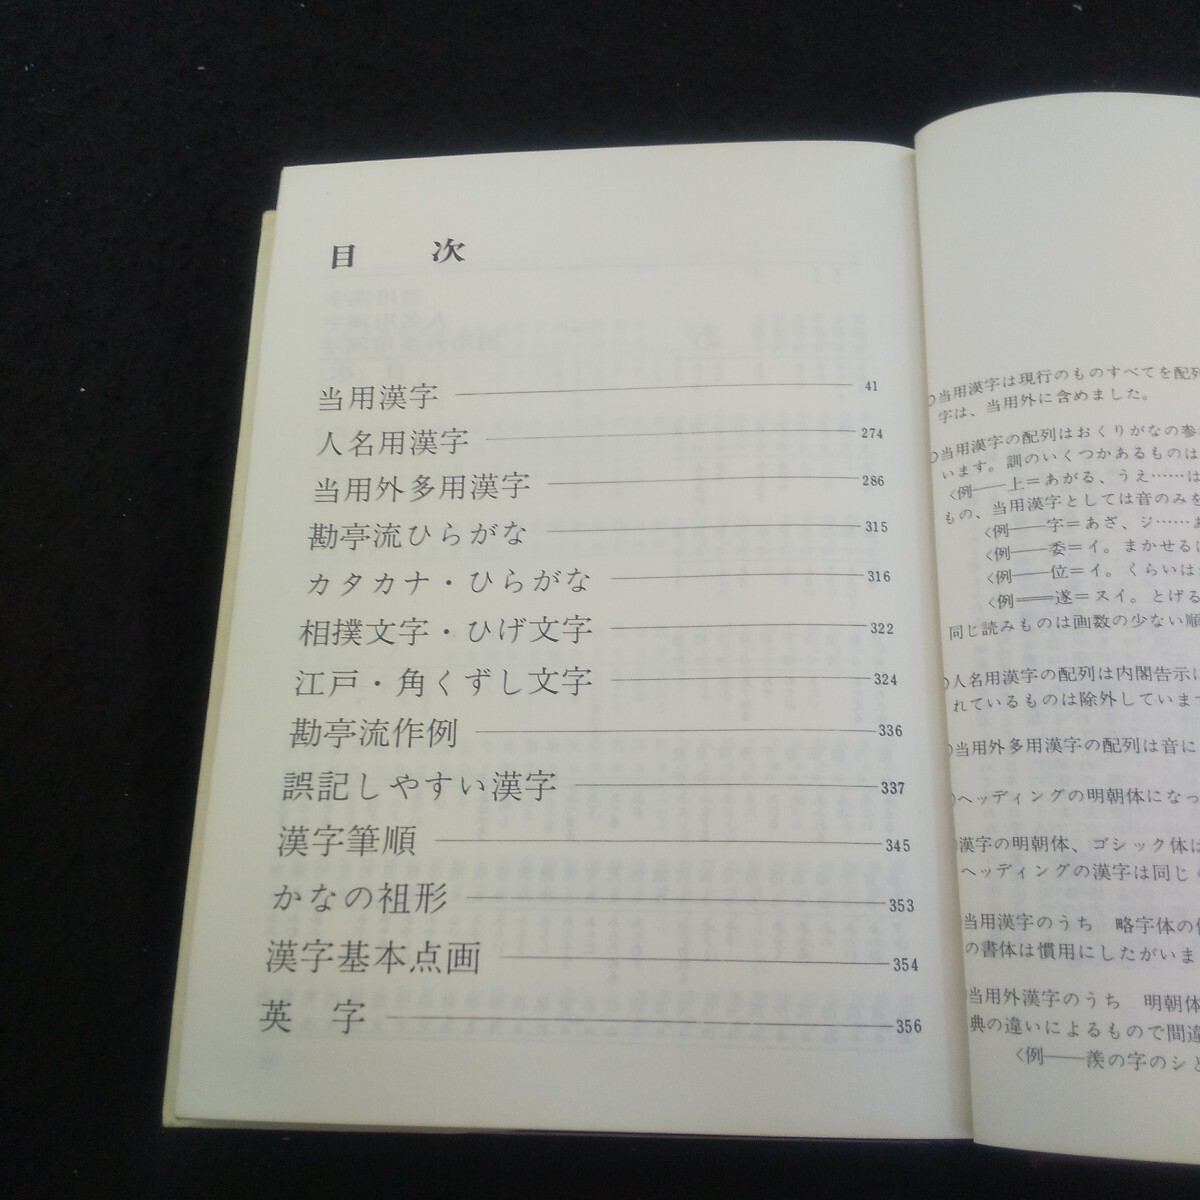 目　次
当用漢字 ―― 41
人名用漢字 ―― 274
当用外多用漢字 ―― 286
勘亭流ひらがな ―― 315
カタカナ・ひらがな ―― 316
相撲文字・ひげ文字 ―― 322
江戸・角くずし文字 ―― 324
勘亭流作例 ―― 336
誤記しやすい漢字 ―― 337
漢字筆順 ―― 345
かなの祖形 ―― 353
漢字基本点画 ―― 354
英　字 ―― 356
○当用漢字は現行のものすべてを配列
字は、当用外に含めました。
○当用漢字の配列はおくりがなの参
います。訓のいくつかあるものは
〈例――上＝あがる、うえ……は
もの、当用漢字としては音のみを
〈例――字＝あざ、ジ……あ
〈例――委＝イ。まかせる
〈例――位＝イ。くらいは
〈例――遂＝スイ。とげる
同じ読みものは画数の少ない順
○人名用漢字の配列は内閣告示に
れているものは除外していま
○当用外多用漢字の配列は音に
○ヘッディングの明朝体になっ
○漢字の明朝体、ゴシック体は
ヘッディングの漢字は同じ
当用漢字のうち　略字体の
の書体は慣用にしたがいま
当用外漢字のうち　明朝体
典の違いによるもので間違
〈例――羨の字のシと